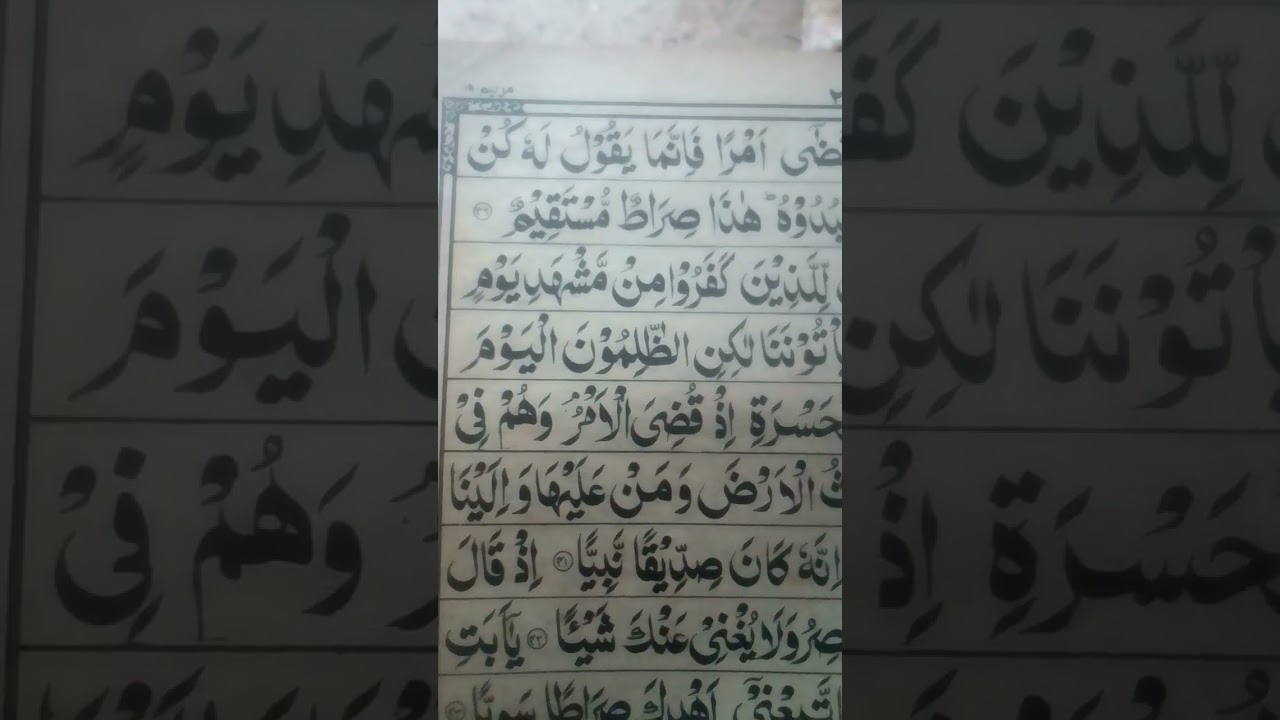 مريم ١٩
ضٰۤى اَمْرًا فَاِنَّمَا يَقُوْلُ لَهٗ كُنْ
بُدُوْهُ ؕ هٰذَا صِرَاطٌ مُّسْتَقِيْمٌ ﴿٣٦﴾
لِّلَّذِيْنَ كَفَرُوْا مِنْ مَّشْهَدِ يَوْمٍ
اْتُوْنَنَا لٰكِنِ الظّٰلِمُوْنَ الْيَوْمَ
حَسْرَةِ اِذْ قُضِىَ الْاَمْرُ وَهُمْ فِىْ
ثُ الْاَرْضَ وَمَنْ عَلَيْهَا وَاِلَيْنَا
اِنَّهٗ كَانَ صِدِّيْقًا نَّبِيًّا ﴿٤١﴾ اِذْ قَالَ
صِرُ وَلَا يُغْنِىْ عَنْكَ شَيْـًٔا ﴿٤٢﴾ يٰۤاَبَتِ
اتَّبِعْنِىْۤ اَهْدِكَ صِرَاطًا سَوِيًّا ﴿٤٣﴾